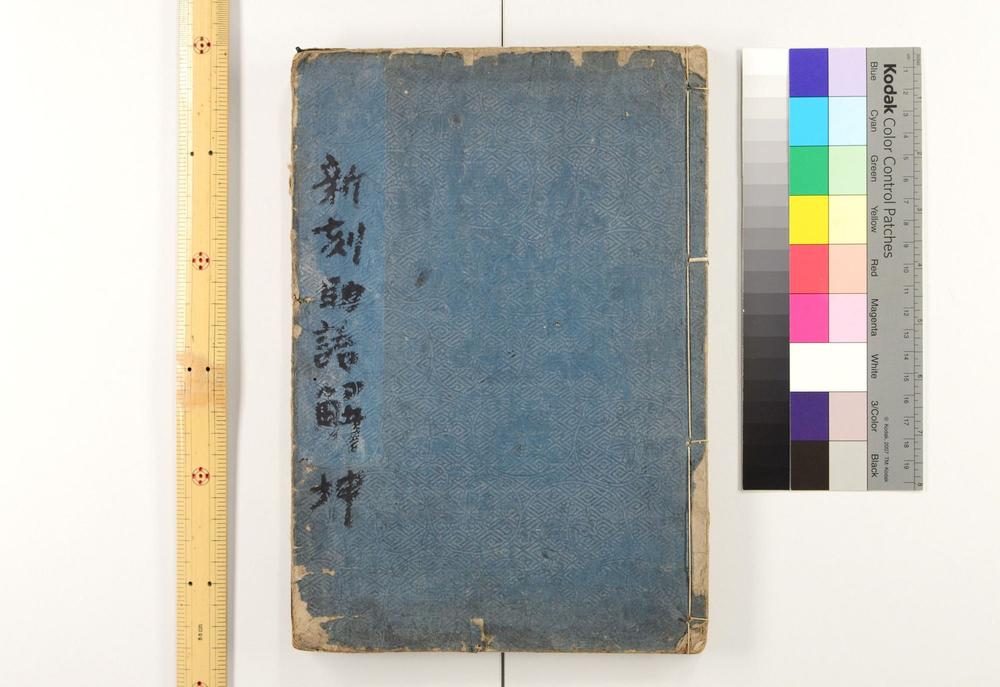 新刻聯語解 坤
Kodak Color Control Patches
Blue
Cyan
Green
Yellow
Red
Magenta
White
3/Color
Black
© Kodak, 2007 TM: Kodak
1
2
3
4
5
6
7
8
9
10
11
12
13
14
15
16
17
18
19